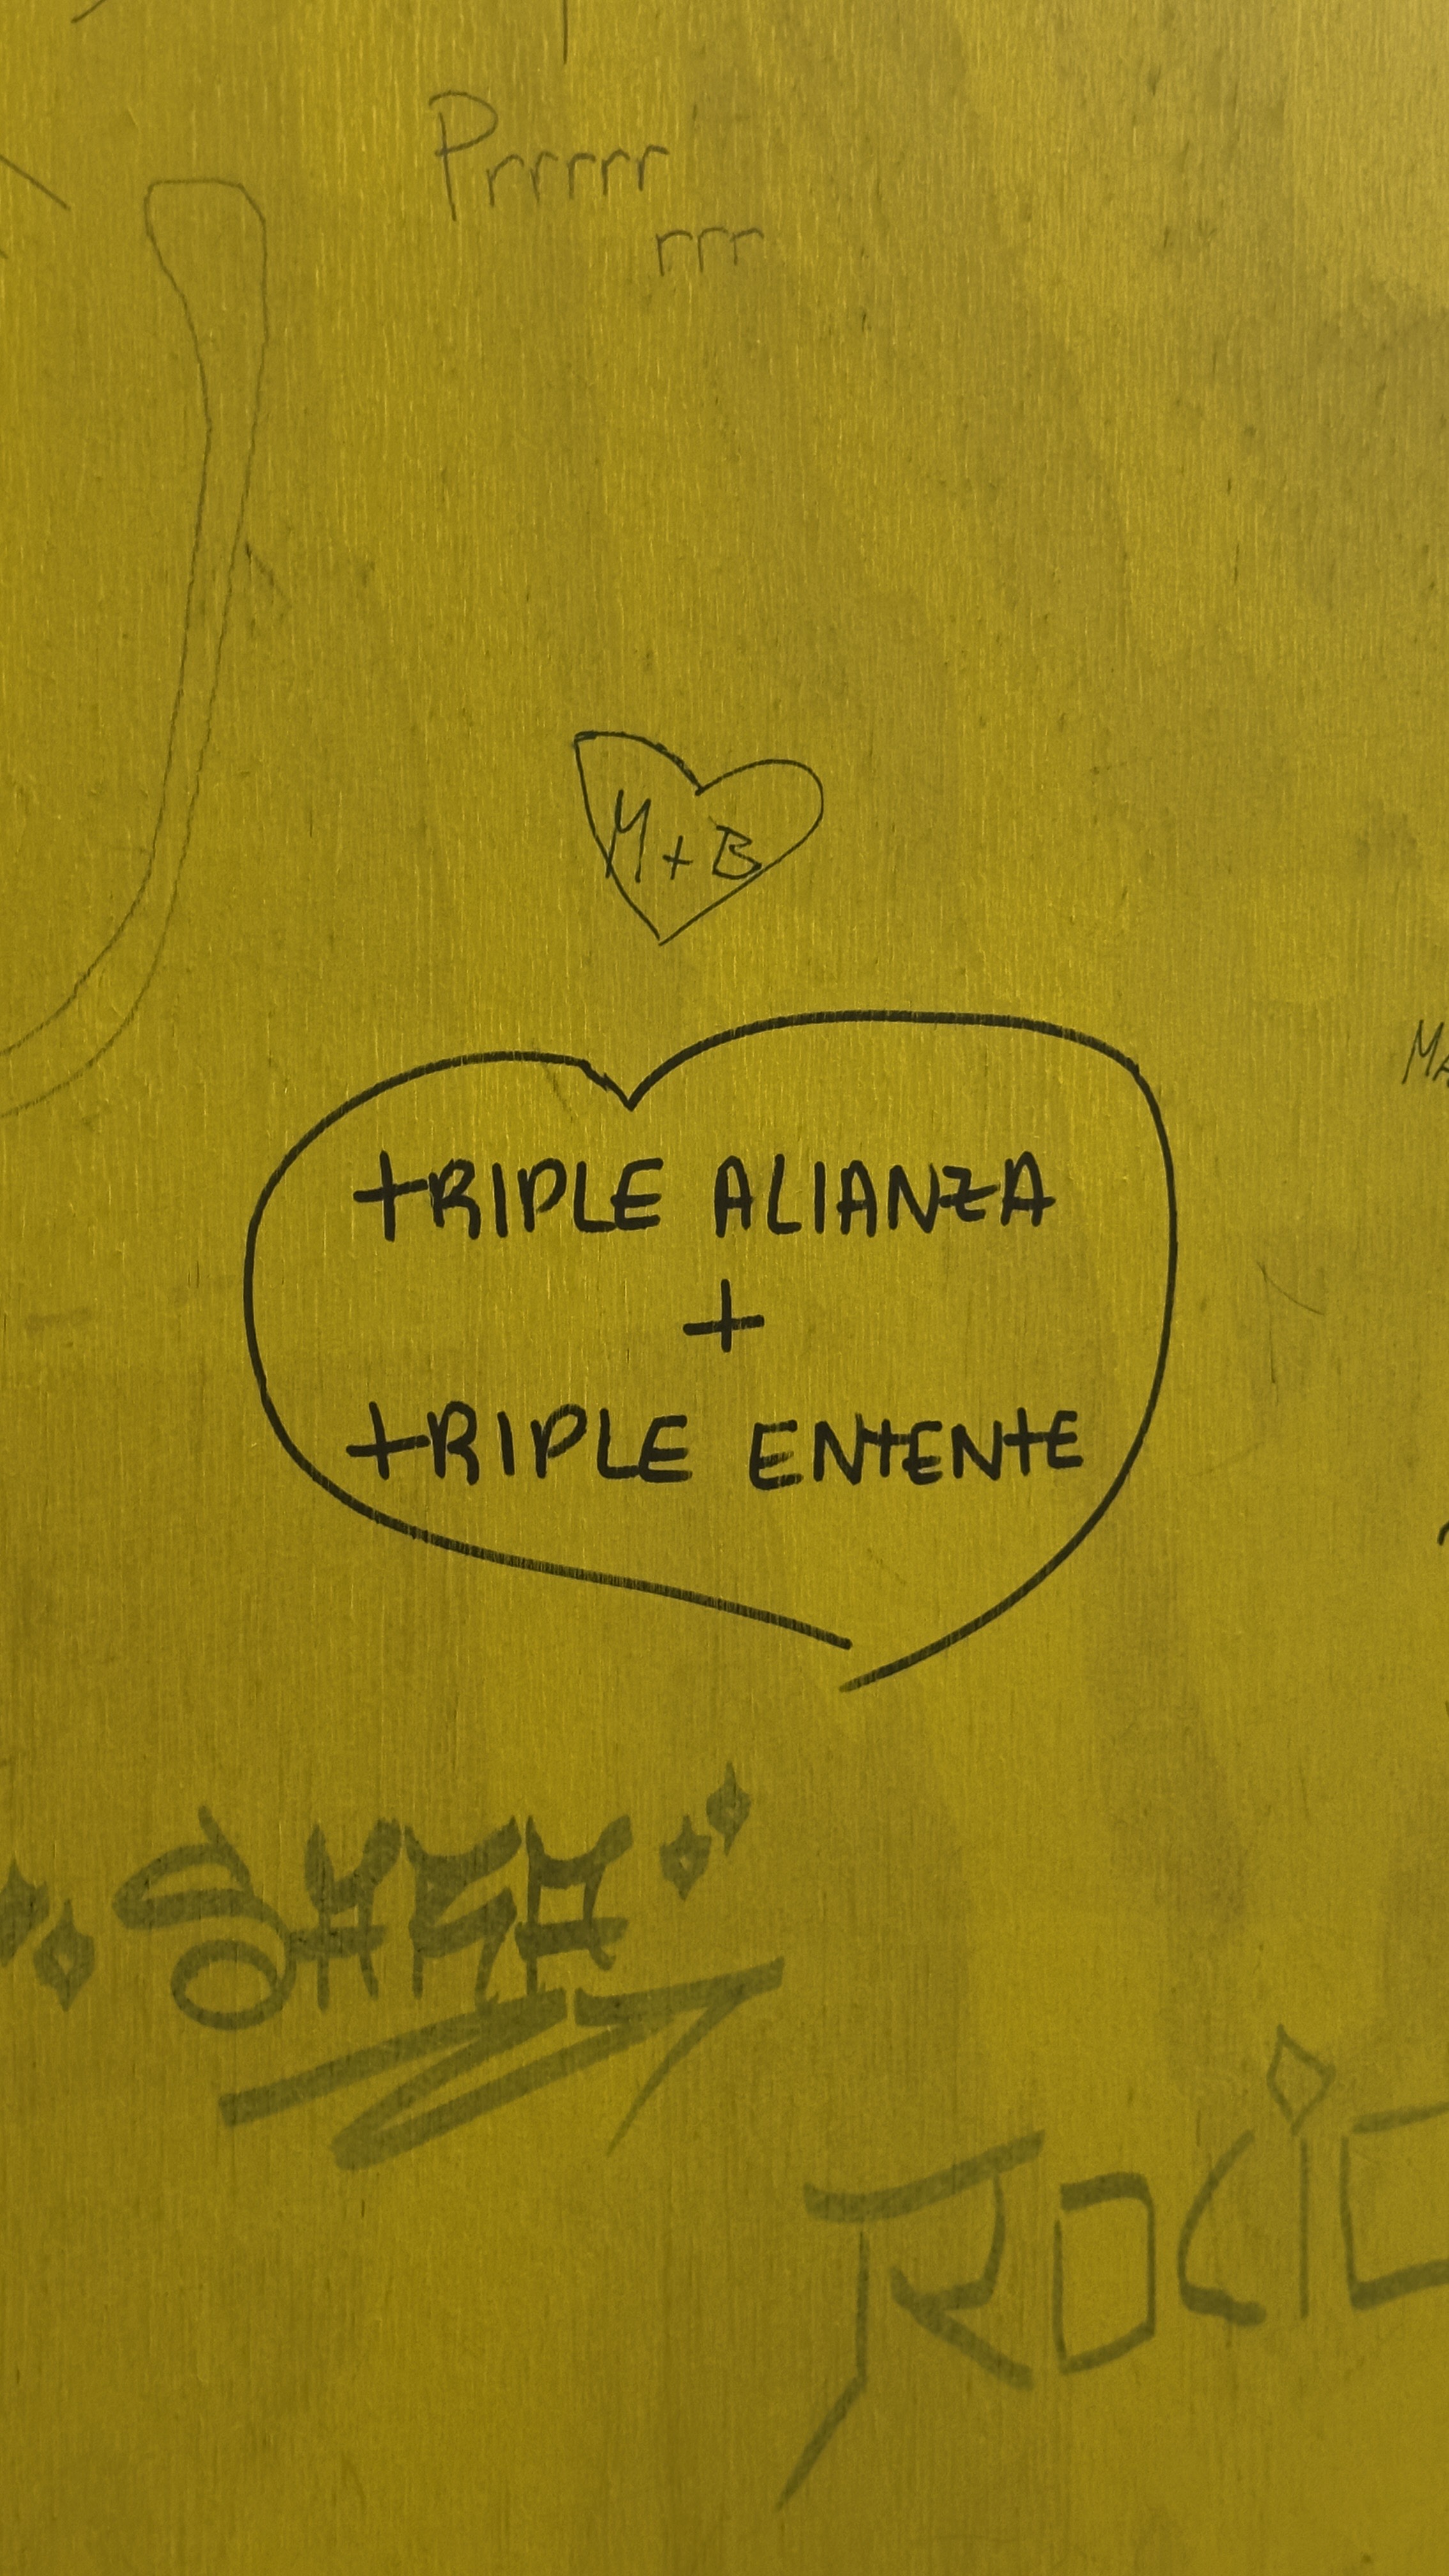 Prrrrr
rrr
M+B
TRIPLE ALIANZA
+
TRIPLE ENTENTE
ROCIO